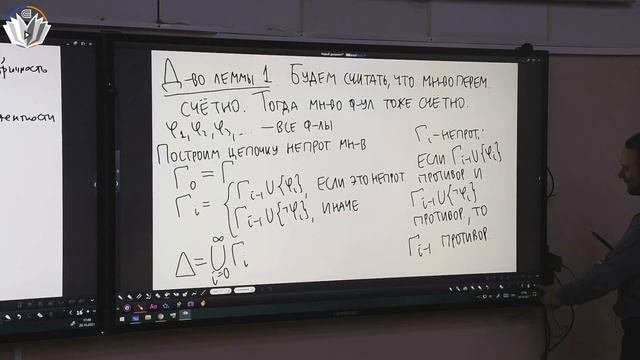 ричность
ентности
Д-во леммы 1. Будем считать, что мн-во перем.
счётно. Тогда мн-во ф-ул тоже счётно.
φ₁, φ₂, φ₃, ... — все ф-лы
Построим цепочку непрот мн-в
Γ₀ = Γ
Γᵢ = { Γᵢ₋₁ ∪ {φᵢ}, если это непрот
Γᵢ₋₁ ∪ {¬φᵢ}, иначе
Δ = ⋃ᵢ₌₀^∞ Γᵢ
Γᵢ - непрот.:
если Γᵢ₋₁ ∪ {φᵢ}
противор. и
Γᵢ₋₁ ∪ {¬φᵢ}
противор, то
Γᵢ₋₁ противор.